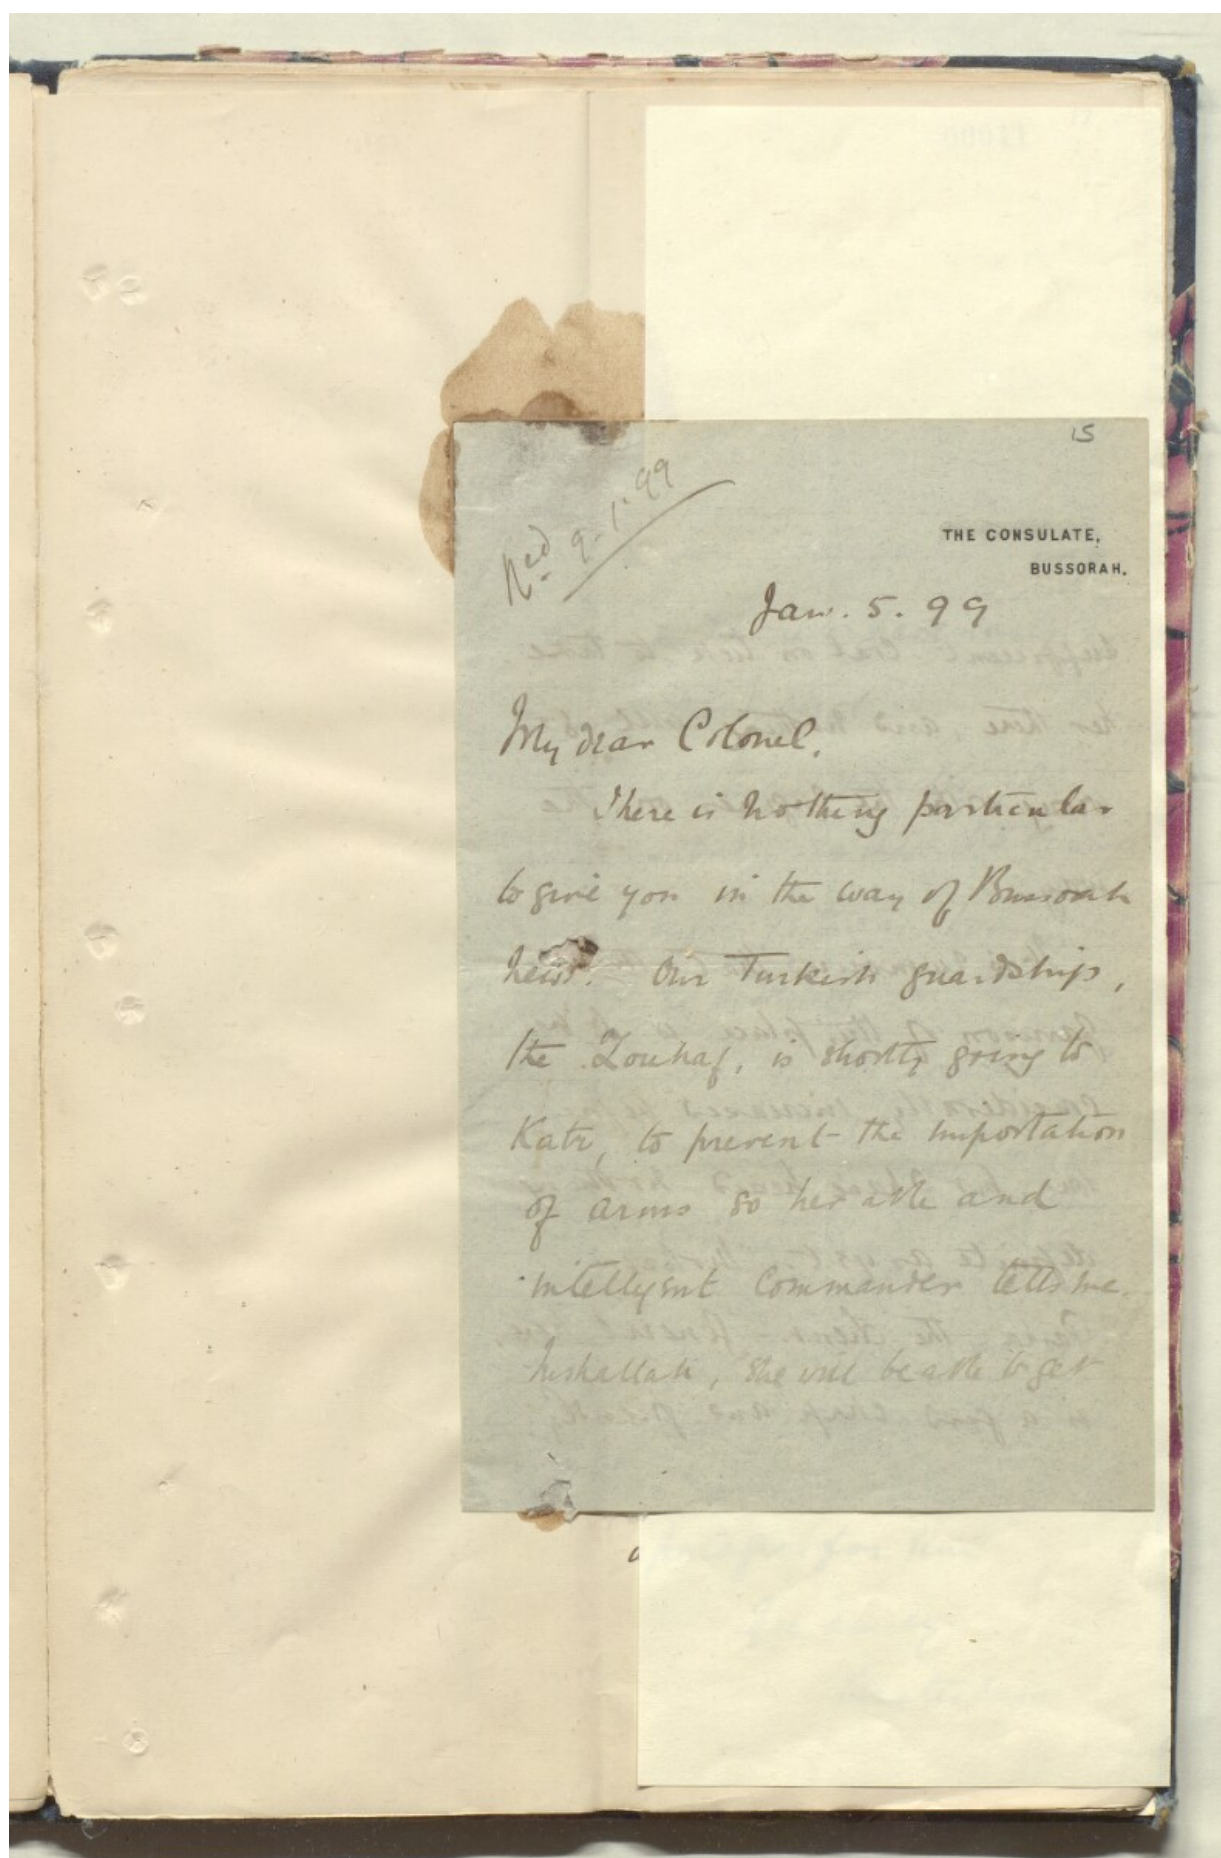 15
Recd. 9-1-99
THE CONSULATE,
BUSSORAH.
Jan. 5. 99
My dear Colonel,
There is nothing particular
to give you in the way of Bussorah
news. Our Turkish guardship,
the Zouhaf, is shortly going to
Katr, to prevent the importation
of arms so her able and
intelligent Commander tells me.
Inshallah, she will be able to get